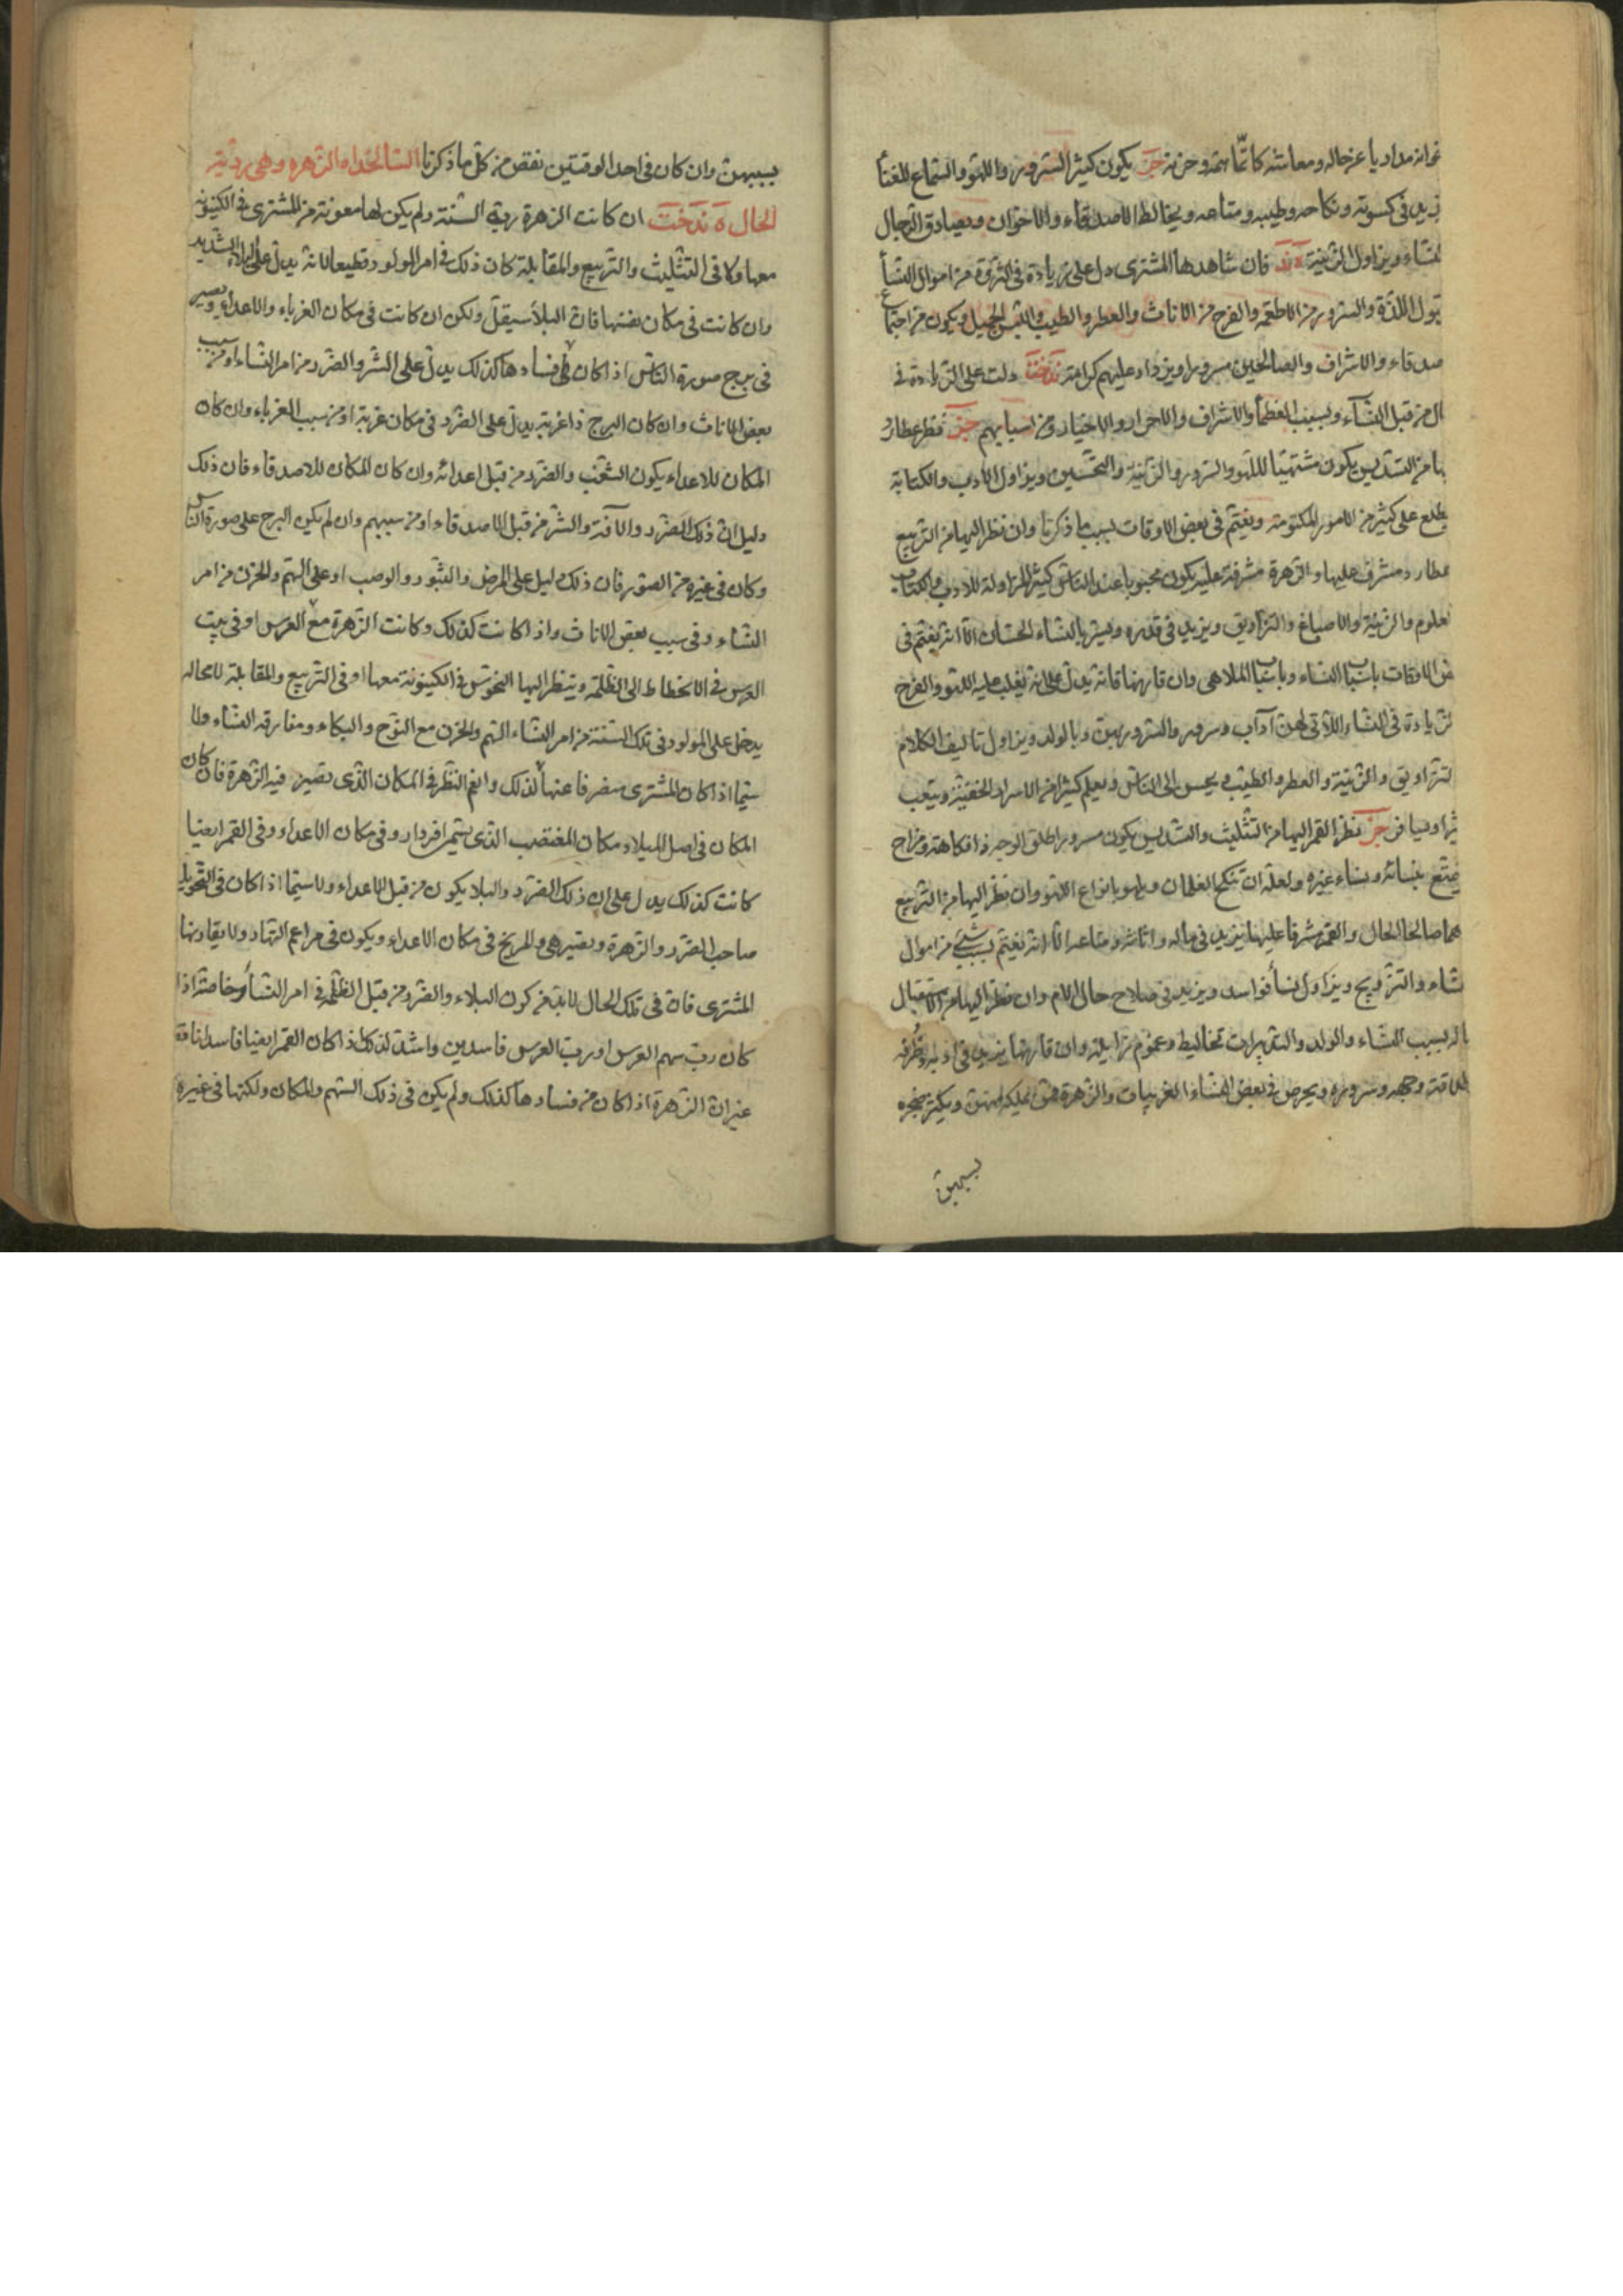 غوانه مداريا عن حاله ومعاشه كاتما همه وحزنه حز يكون كثير السرور واللهو والسماع للغنا
يزيد في كسوته ونكاحه وطيبه ومتاعه ويخالط الاصدقاء والاخوان ويصادق الرجال
لنساء ويزاول الزينة ه ند فان شاهدها المشترى دل على زيادة في الثروة من اموال النسأ
بول اللذة والسرور من الاطعمة والفرح من الاناث والعطر والطيب واللبس الجميل ويكون من اجتماع
صدقاء والاشراف والصالحين مسرورا ويزداد عليهم كرامته دلت على الزيادة في
ال من قبل النسآء وبسبب العظمأ والاشراف والاحرار والاخيار ومن اسبابهم حز فنظر عطارد
بها من التسديس يكون مشتهيا للهو والسرور والزينة والتحسين ويزاول الادب والكتابة
يطلع على كثير من الامور المكتومة ويغتم في بعض الاوقات بسبب ما ذكرنا وان نظر اليها من التربيع
عطارد مشرف عليها والزهرة مشرفة عليه يكون محبوبا عند الناس كثير المزاولة للادب والكتاب
لعلوم والزينة والاصباغ والتزاويق ويزيد في قدره ويسر بالنساء الحسان الا انه يغتم في
ض الاوقات باسباب النساء وباسباب الملاهى وان قارنها فانه يدل على انه يغلب عليه اللهو والفرح
لزيادة في النساء اللاتى لهن آداب وسرور والسرور بهن وبالولد ويزاول تاليف الكلام
لتزاويق والزينة والعطر والطيب ويحسن الى الناس ويعلم كثيرا من الاسرار الخفية ويتعب
ثيرا ويسافر حز نظر القمر اليها من التثليث والتسديس يكون مسرورا طلق الوجه ذا فكاهة ومزاح
يتمتع بنسائه ونساء غيره ولعله ان تنكح الغلمان ويلهو بانواع اللهو وان نظر اليها من التربيع
هما صالحا الحال والقمر مشرفا عليها يزيد في ماله واثاثه ومتاعه الا انه يغتم بسبب شئ من اموال
نساء والتزويج ويزاول نسأ فواسد ويزيد في صلاح حال الام وان نظر اليها من الاستقبال
اله بسبب النساء والولد والتدبيرات تخاليط وغموم زايلة وان قارنها يزيد في ادبه وظرفه
طلاقة وجهه وسروره ويحرص في بعض النساء الغريبات والزهرة ويكثر ضجره
بسببهن
بسببهن وان كان في احد الوقتين نقص من كل ما ذكرنا السالخداه الزهره وهى رديه
الحال ه ند خت ان كانت الزهرة ربة السنة ولم يكن لها معونة من المشترى في الكينونة
معها ولا في التثليث والتربيع والمقابلة كان ذلك في امر المولود قطيعا لانه يدل على البلاء الشديد
وان كانت في مكان بضتها فان البلأ سيقل ولكن ان كانت في مكان الغرباء والاعداء ويصير
في برج صورة الناس اذا كان على فسادها كذلك يدل على الشر والضرر من امر النساء او من سبب
بعض الاناث وان كان البرج ذا غربة يدل على الضرر في مكان غربة او من سبب الغرباء وان كان
المكان للاعداء يكون الشغب والضرر من قبل اعدائه وان كان المكان للاصدقاء فان ذلك
دليل ان ذلك الضرر والآفة والشر من قبل الاصدقاء او من سببهم وان لم يكن البرج على صورة الناس
وكان في غيره من الصور فان ذلك دليل على المرض والبثور والوصب او على الهم والحزن من امر
النساء وفى سبب بعض الاناث واذا كانت كذلك وكانت الزهرة مع العرس او في بيت
العرس في الانحطاط الى الظلمة وينظر اليها النحوس في الكينونة معها او في التربيع والمقابلة لا محالة
يدخل على المولود في تلك السنة من امر النساء الهم والحزن مع النوح والبكاء ومفارقة النساء ولا
سيما اذا كان المشترى منصرفا عنها كذلك وانعم النظر في المكان الذى تصير فيه الزهرة فان كان
المكان في اصل الميلاد مكان المغتصب الذى يسمى افردار وفى مكان الاعداء وفى القمر ايضا
كانت كذلك يدل على ان ذلك الضرر والبلاء يكون من قبل الاعداء ولا سيما اذا كان في التحويل
صاحب الضرر والزهرة ويصير هى والمريخ في مكان الاعداء ويكون في مزاعم النهار ولا يقارنها
المشترى فان في تلك الحال لا بد من كون البلاء والضرر من قبل الظلمة في امر النسأ وخاصة اذا
كان رب سهم العرس او رب العرس فاسدين واشد لذلك اذا كان القمر ايضا فاسدا ناقة
غير ان الزهرة اذا كان من فسادها كذلك ولم يكن في ذلك السهم والمكان ولكنها في غيره